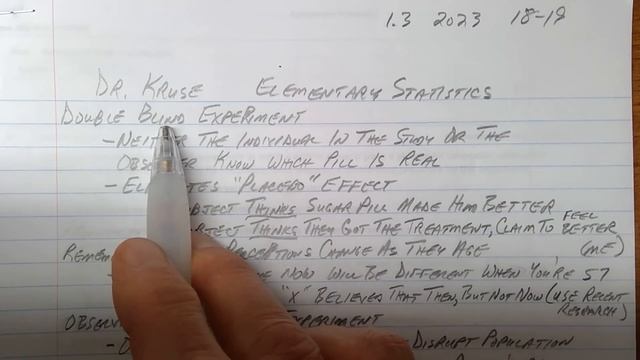 1.3 2023 18-19
DR. KRUSE ELEMENTARY STATISTICS
DOUBLE BLIND EXPERIMENT
- NEITHER THE INDIVIDUAL IN THE STUDY OR THE
OBSERVER KNOW WHICH PILL IS REAL
- "PLACEBO" EFFECT
THINKS SUGAR PILL MADE HIM BETTER
THINKS THEY GOT THE TREATMENT, CLAIM TO FEEL BETTER
PERCEPTIONS CHANGE AS THEY AGE (ME)
NOW WILL BE DIFFERENT WHEN YOU'RE 57
"X" BELIEVES THAT THEN, BUT NOT NOW (USE RECENT RESEARCH)
EXPERIMENT
DISRUPT POPULATION